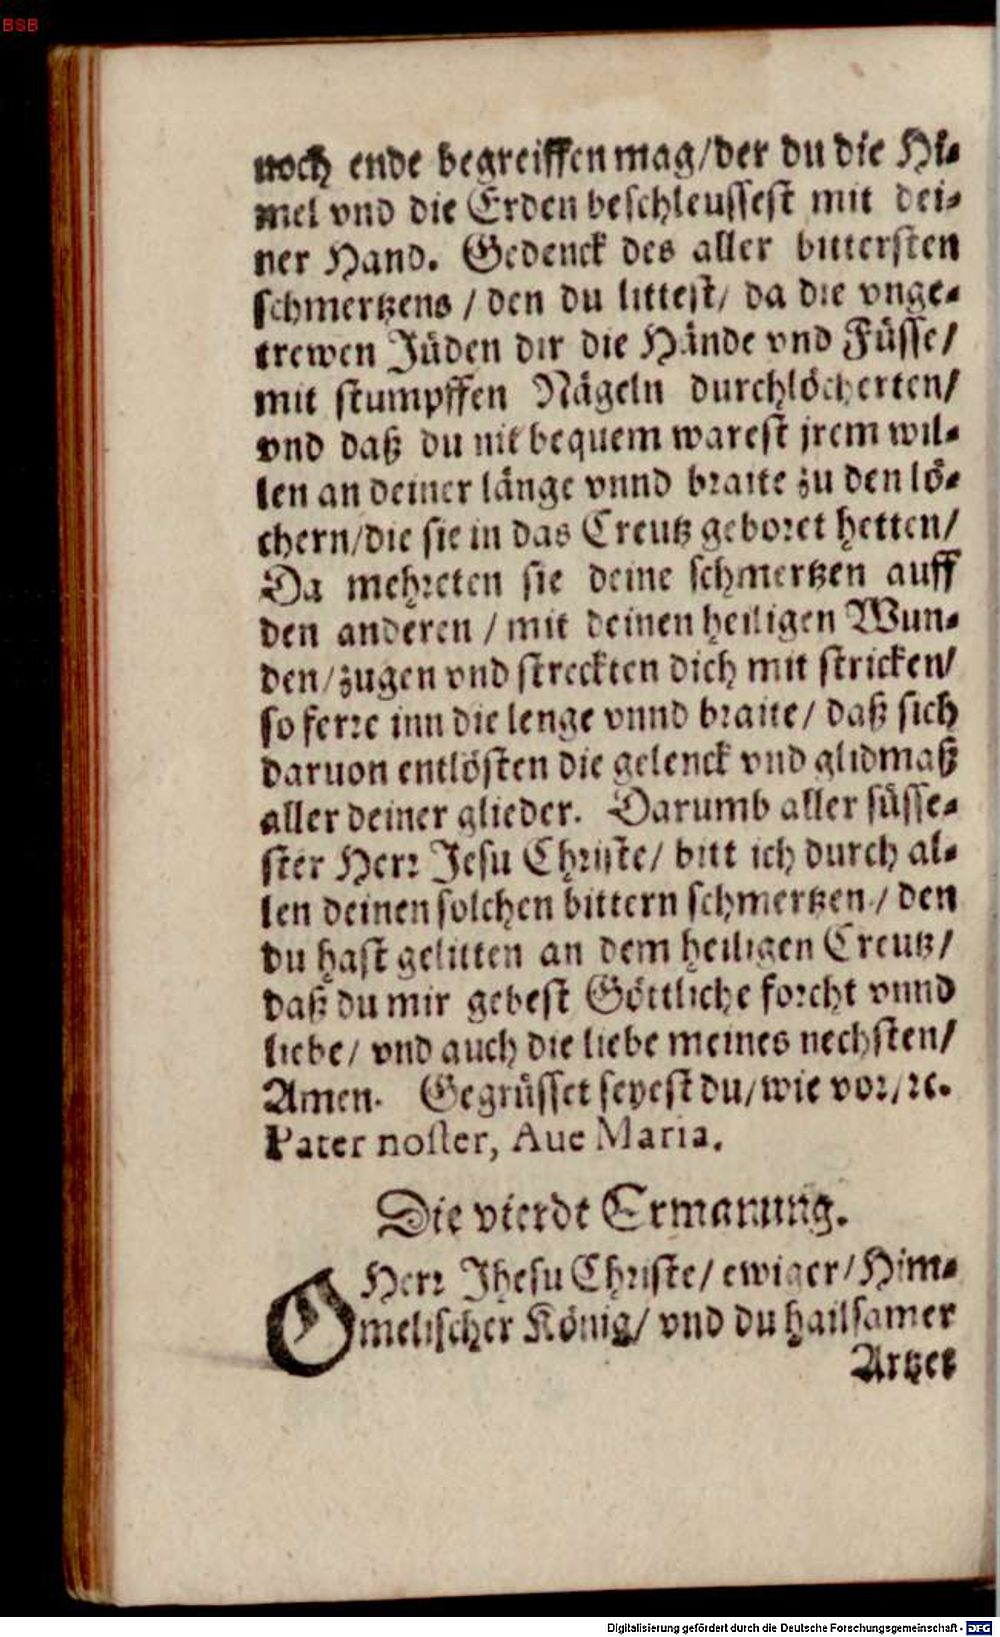 BSB
noch ende begreiffen mag/der du die Hi-
mel vnd die Erden beschleussest mit dei-
ner Hand. Gedenck des aller bittersten
schmertzens / den du littest/ da die vnge-
trewen Jüden dir die Hände vnd Füsse/
mit stumpffen Nägeln durchlöcherten/
vnd daß du nit bequem warest jrem wil-
len an deiner länge vnnd braite zu den lö-
chern/die sie in das Creutz geboret hetten/
Da mehreten sie deine schmertzen auff
den anderen / mit deinen heiligen Wun-
den/zugen vnd streckten dich mit stricken/
so ferre inn die lenge vnnd braite/ daß sich
daruon entlösten die gelenck vnd glidmaß
aller deiner glieder. Darumb aller süsse-
ster Herr Jesu Christe/ bitt ich durch al-
len deinen solchen bittern schmertzen / den
du hast gelitten an dem heiligen Creutz/
daß du mir gebest Göttliche forcht vnnd
liebe/ vnd auch die liebe meines nechsten/
Amen. Gegrüsset seyest du/wie vor/ꝛc.
Pater noster, Aue Maria.
Die vierdt Ermanung.
O Herr Jhesu Christe/ ewiger/Him-
melischer König/ vnd du hailsamer
Artzet
Digitalisierung gefördert durch die Deutsche Forschungsgemeinschaft - DFG